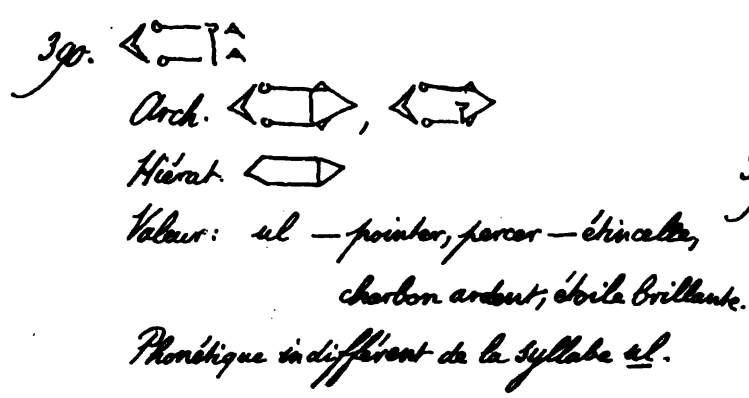 390.
Arch. ,
Hiérat.
Valeur : ul — pointer, percer — étincelle,
charbon ardent, étoile brillante.
Phonétique indifférent de la syllabe ul.